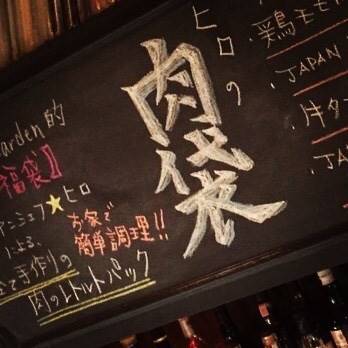 ヒロの
肉袋
arden的
福袋』
シェフ★ヒロ
による、
手作りの
肉のレトルトパック
お家で
簡単調理!!
・鶏モモ
・JAPAN
・牛タ
・JA